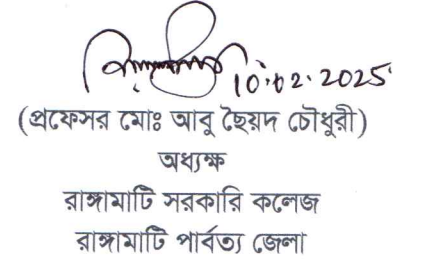 10.02.2025
(প্রফেসর মোঃ আবু ছৈয়দ চৌধুরী)
অধ্যক্ষ
রাঙ্গামাটি সরকারি কলেজ
রাঙ্গামাটি পার্বত্য জেলা